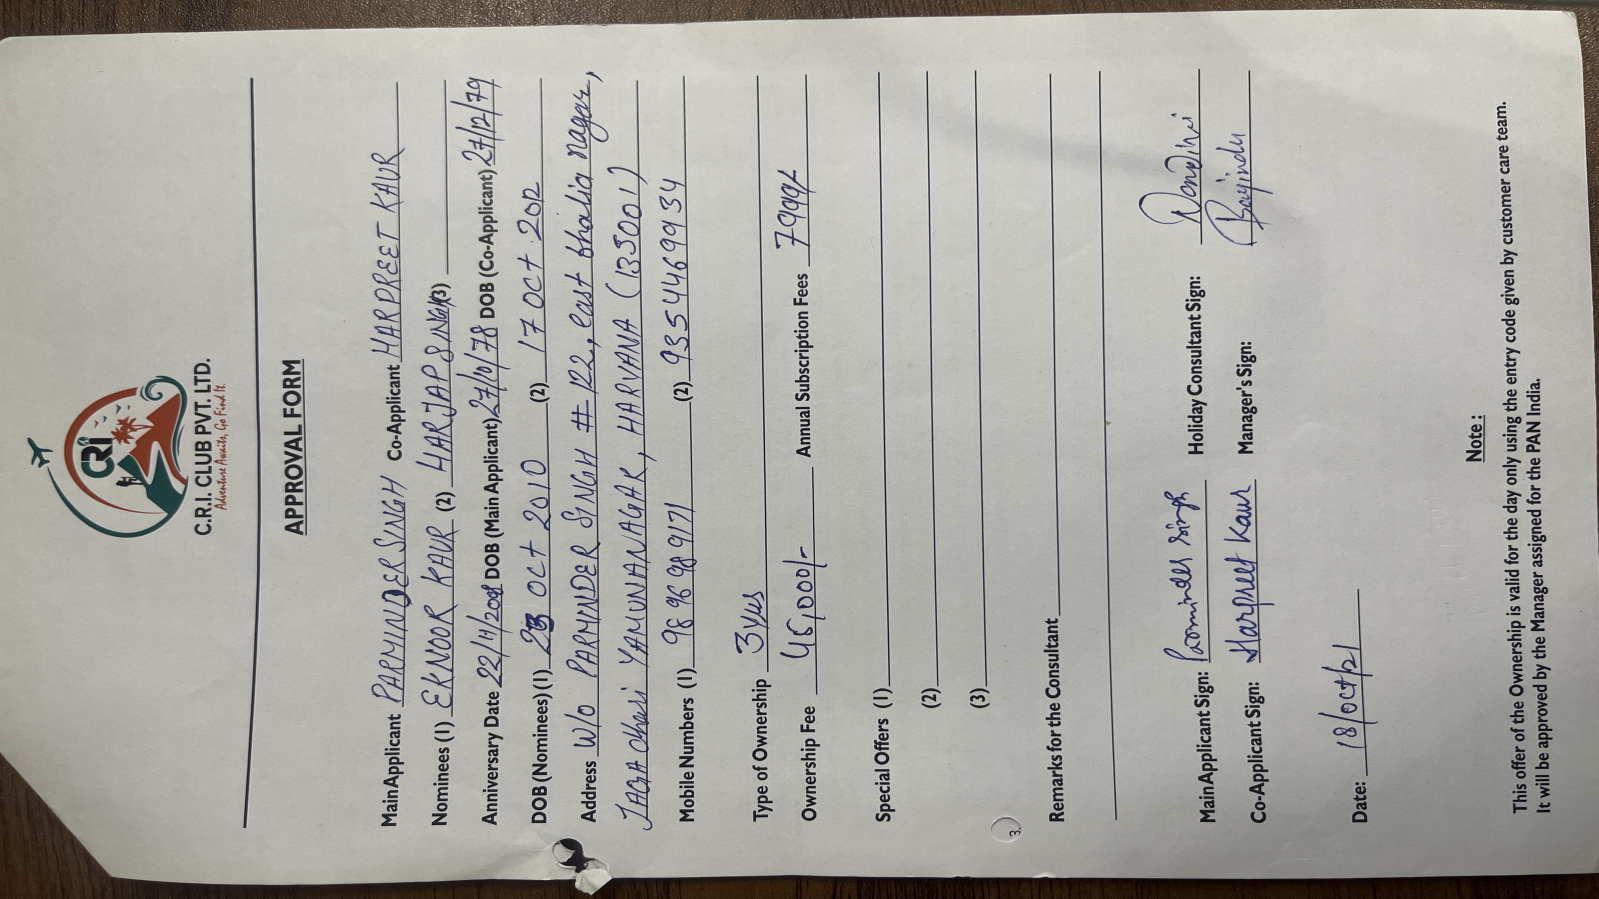 CRI
C.R.I. CLUB PVT. LTD.
Adventure Awaits, Go Find It.
APPROVAL FORM
Main Applicant PARMINDER SINGH Co-Applicant HARPREET KAUR
Nominees (1) EKNOOR KAUR (2) HARJAP SINGH (3)
Anniversary Date 22/11/2008 DOB (Main Applicant) 27/10/78 DOB (Co-Applicant) 27/12/79
DOB (Nominees) (1) 23 OCT 2010 (2) 17 OCT 2012
Address W/O PARMINDER SINGH # 122, east bhatia nagar,
JAGAdhari YAMUNANAGAR, HARYANA (135001)
Mobile Numbers (1) 9896989171 (2) 9354469934
Type of Ownership 3 yrs
Ownership Fee 45,000/- Annual Subscription Fees 7999/-
Special Offers (1)
(2)
(3)
3.
Remarks for the Consultant
Main Applicant Sign: Parminder Singh Holiday Consultant Sign:
Co-Applicant Sign: Harpreet Kaur Manager's Sign:
Date: 18/oct/21
Note :
This offer of the Ownership is valid for the day only using the entry code given by customer care team.
It will be approved by the Manager assigned for the PAN India.